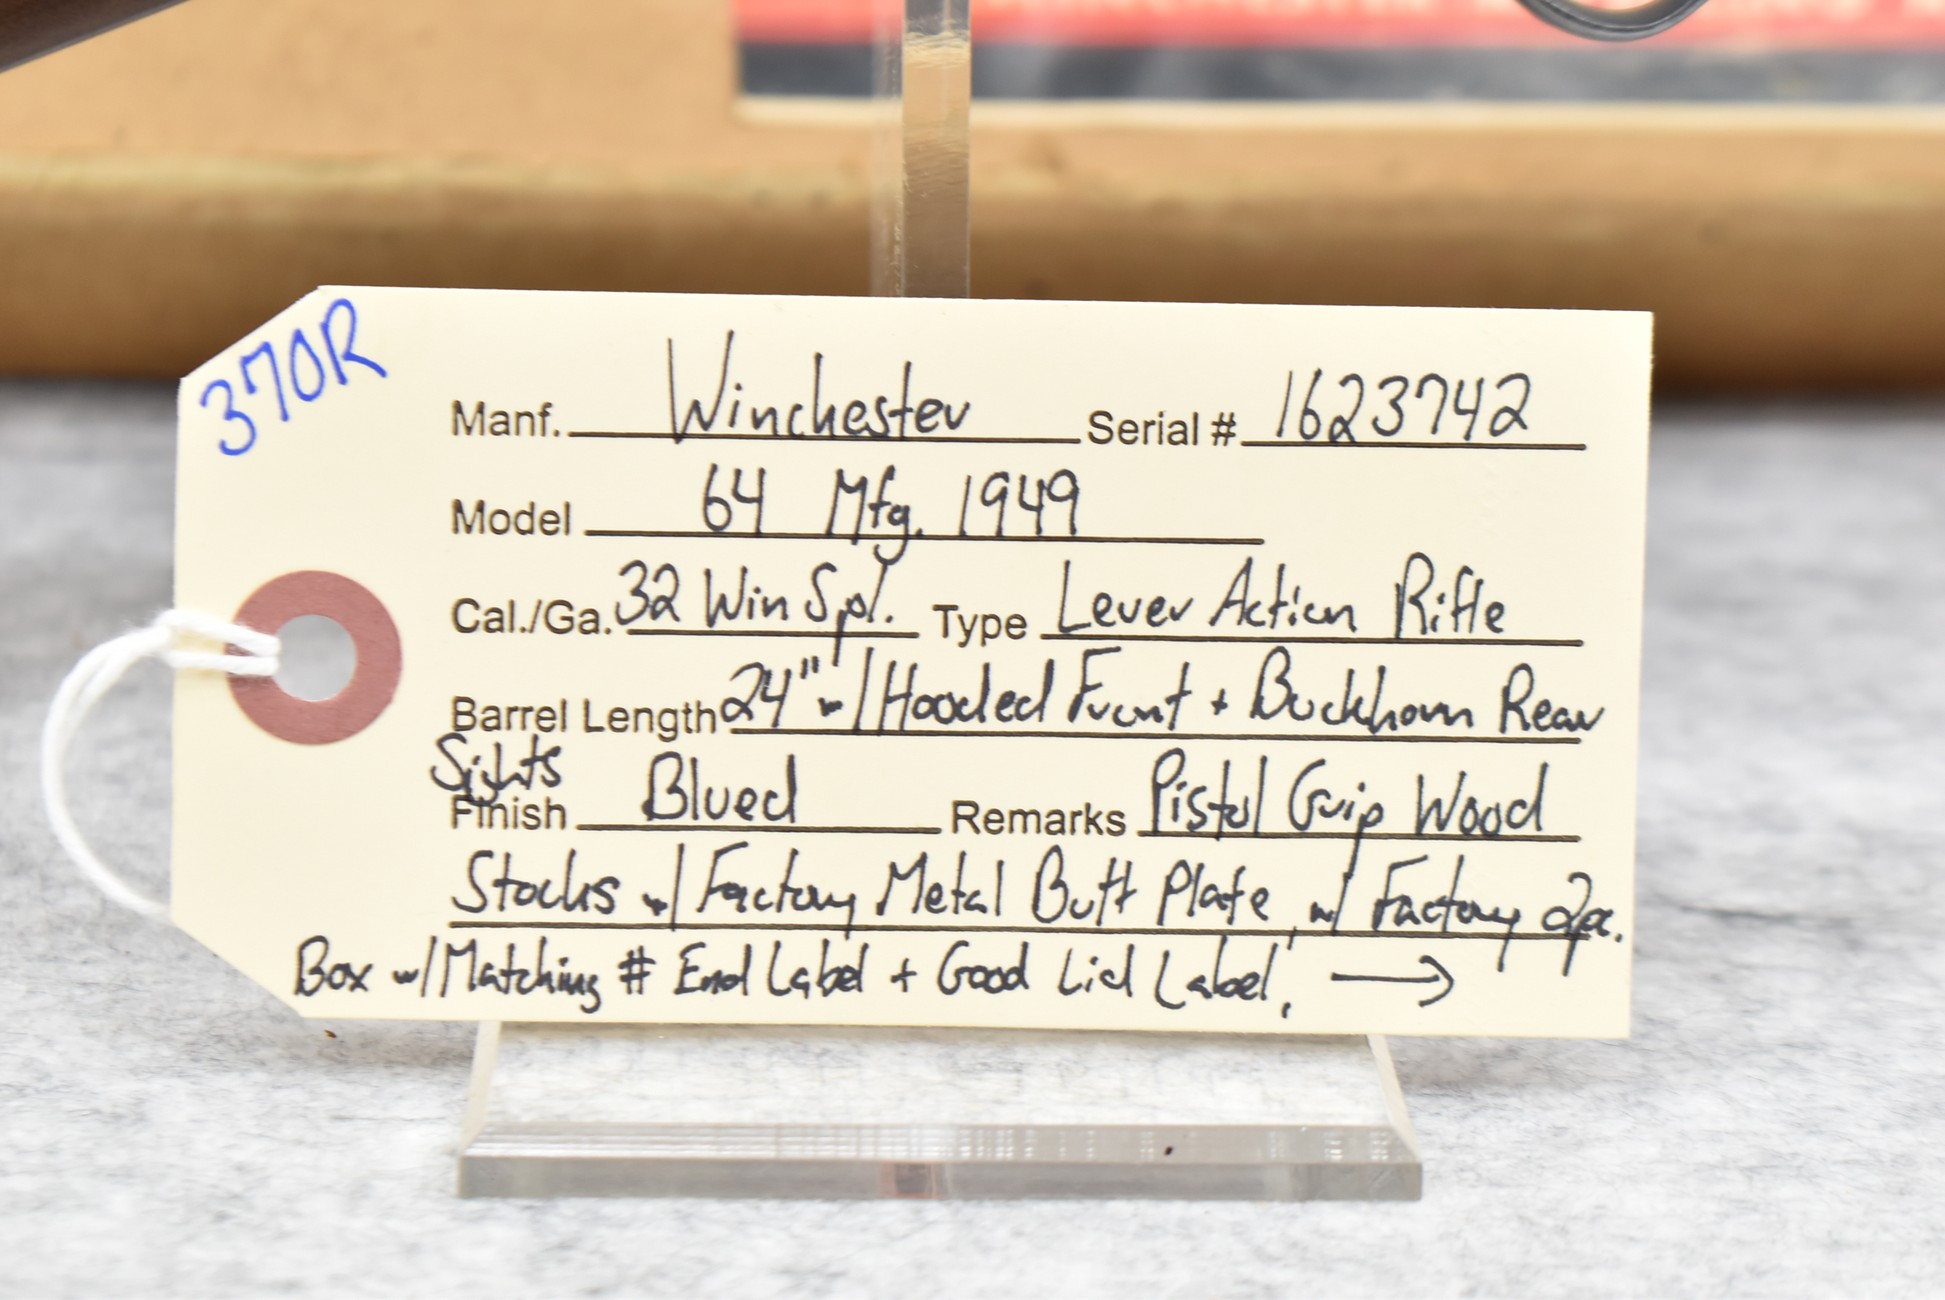 370R
Manf. Winchester Serial # 1623742
Model 64 Mfg. 1949
Cal./Ga. 32 Win Spl. Type Lever Action Rifle
Barrel Length 24" w/ Hooded Front + Buckhorn Rear
Sights
Finish Blued Remarks Pistol Grip Wood
Stocks w/ Factory Metal Butt Plate, w/ Factory 2pc.
Box w/ Matching # End Label + Good Lid Label, →